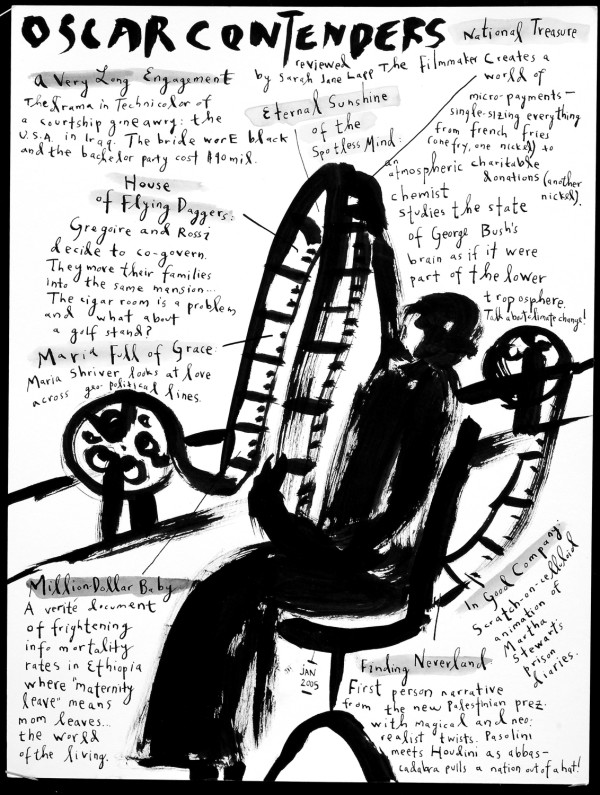 OSCAR CONTENDERS
reviewed
by Sarah Jane Lapp
A Very Long Engagement
The drama in Technicolor of
a courtship gone awry: the
U.S.A. in Iraq. The bride wore black
and the bachelor party cost $40 mil.
National Treasure
The filmmaker creates a
world of
micro-payments—
single-sizing everything
from french fries
(one fry, one nickel) to
charitable
donations (another
nickel).
Eternal Sunshine
of the
Spotless Mind:
an
atmospheric
chemist
studies the state
of George Bush's
brain as if it were
part of the lower
troposphere.
Talk about climate change!
House
of Flying Daggers:
Gregoire and Rossi
decide to co-govern.
They move their families
into the same mansion...
The cigar room is a problem
and what about
a golf stand?
Maria Full of Grace:
Maria Shriver looks at love
across geo-political lines.
Million-Dollar Baby
A verité document
of frightening
info mortality
rates in Ethiopia
where "maternity
leave" means
mom leaves...
the world
of the living.
JAN
2005
In Good Company:
Scratch-on-celluloid
animation of
Martha
Stewart's
prison
diaries.
Finding Neverland
First person narrative
from the new Palestinian prez.
with magical and neo-
realist twists. Pasolini
meets Houdini as abbas-
cadabra pulls a nation out of a hat!